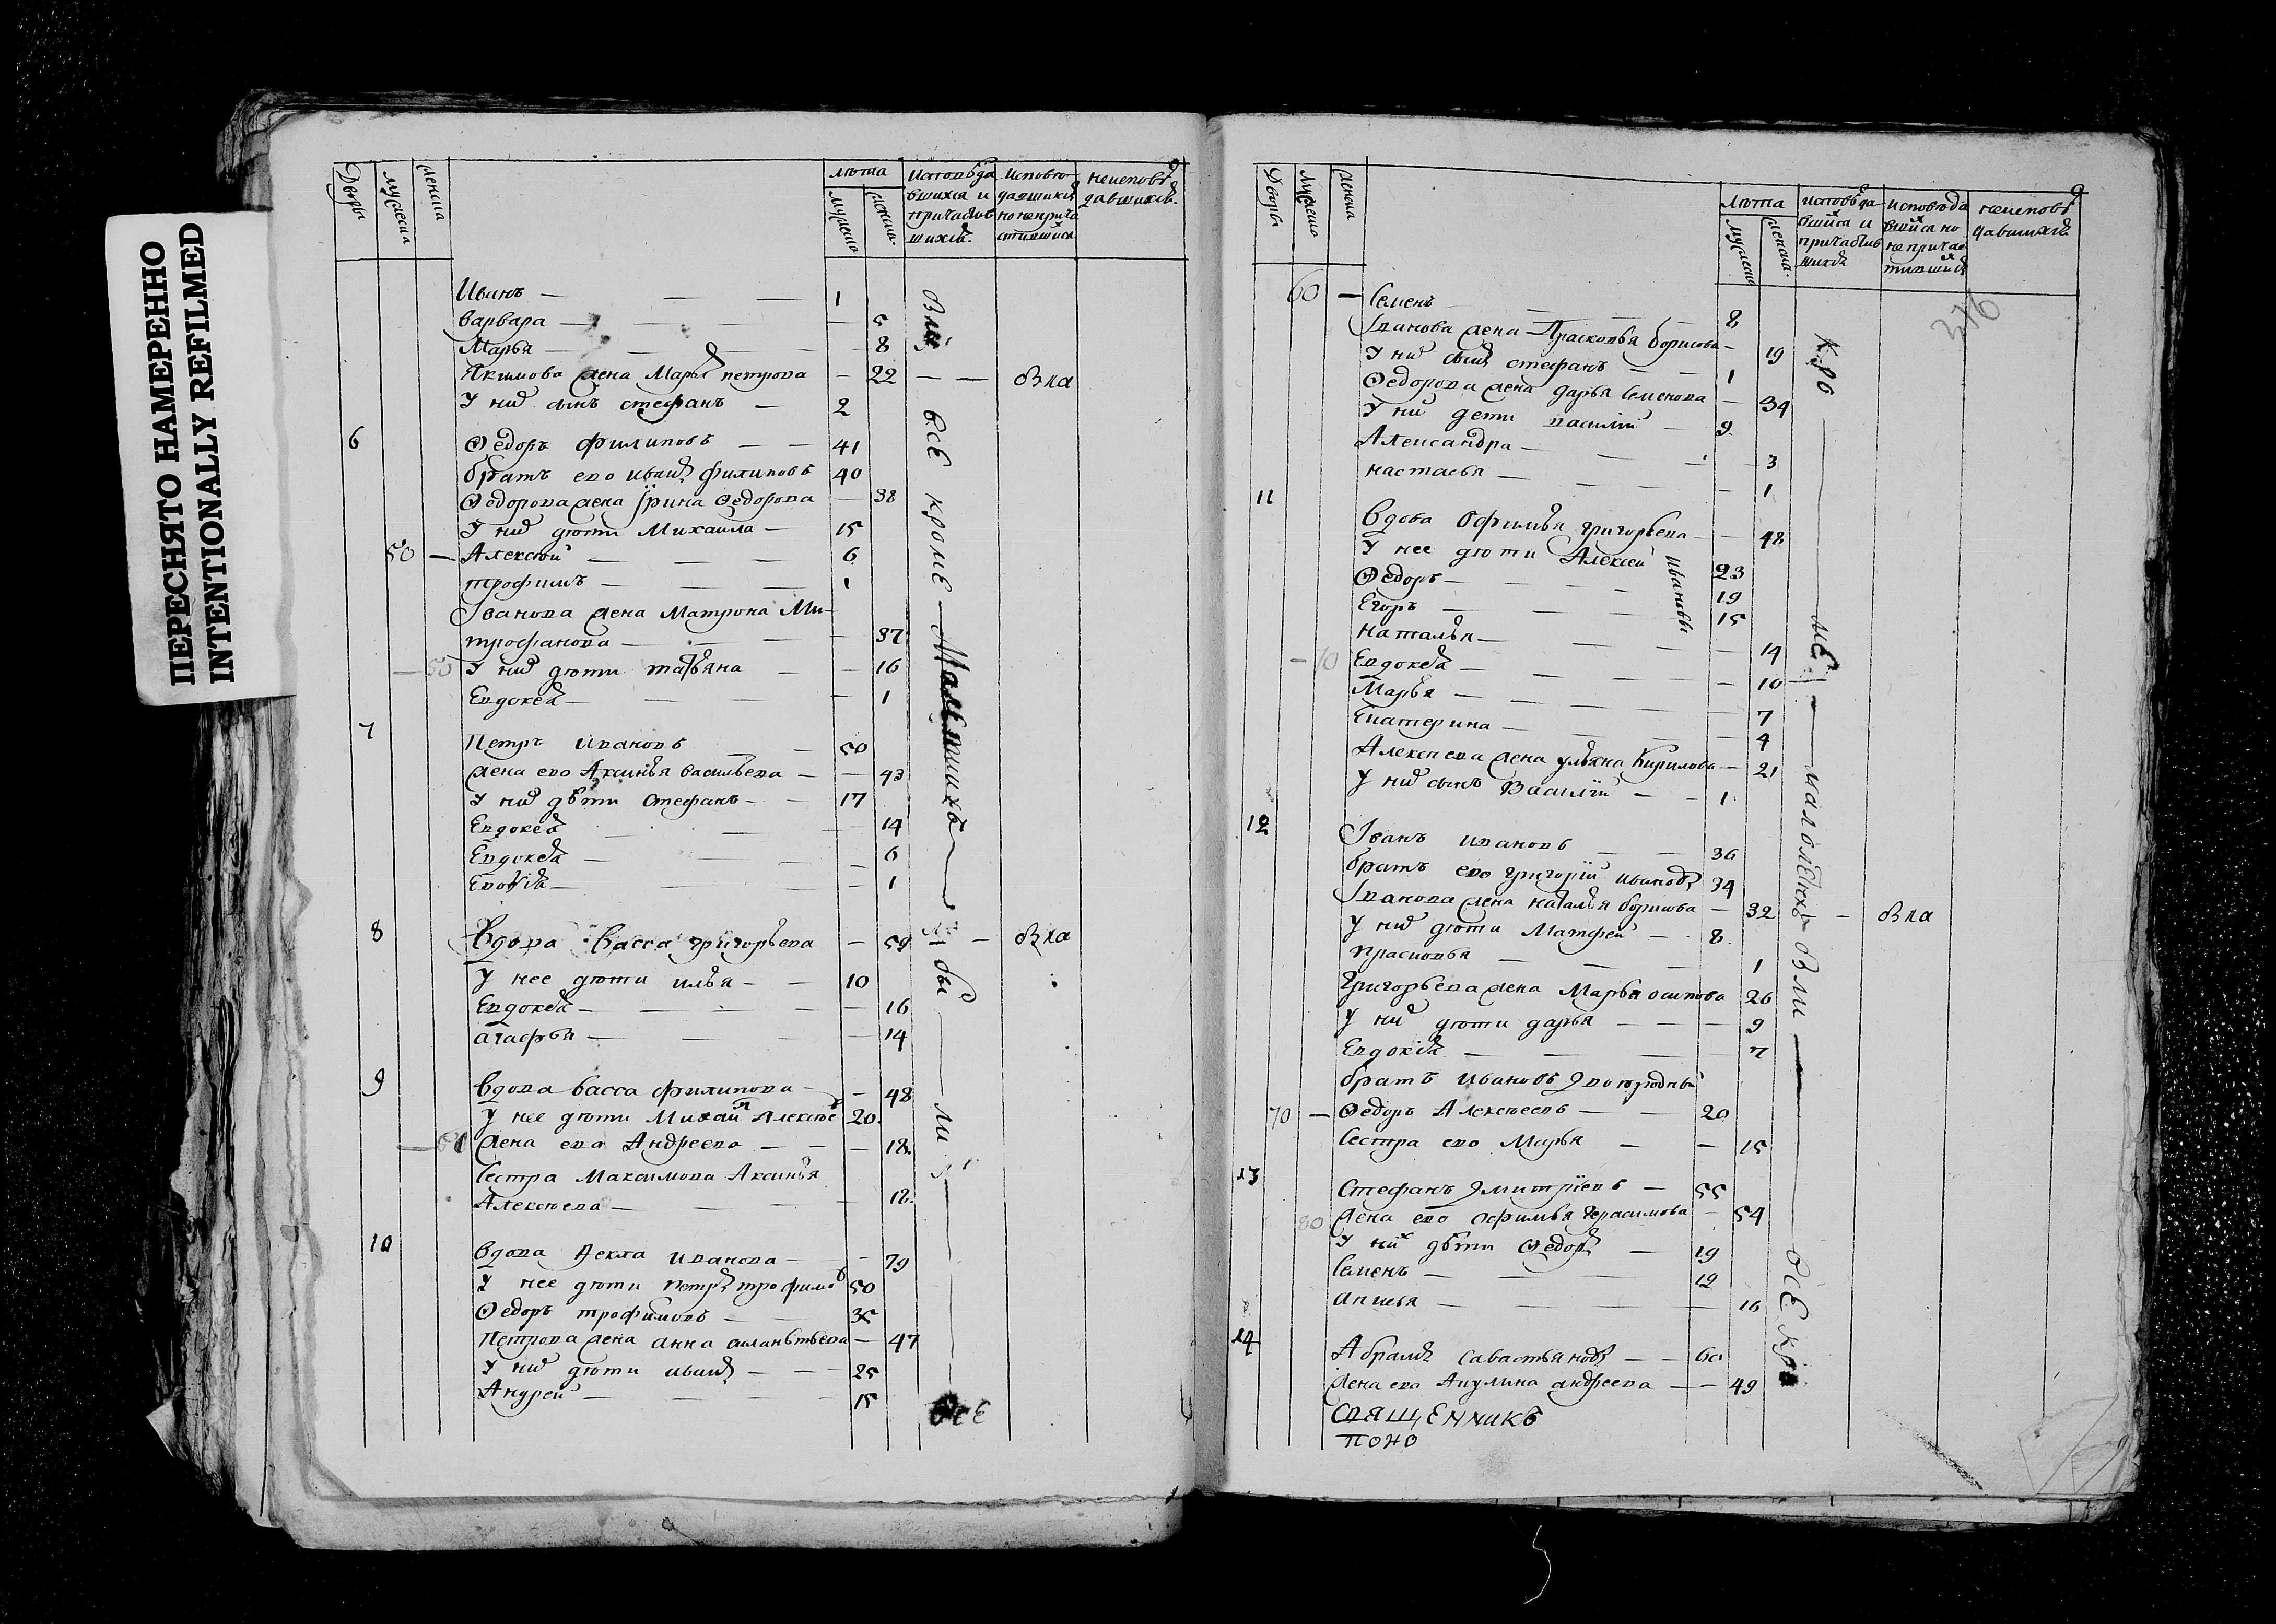 ПЕРЕСНЯТО НАМЕРЕННО
INTENTIONALLY REFILMED
Дворы
мужеска
женска
лѣта
мужеска
женска
исповѣда
вшихся и
причастив
шихся
исповѣ
давшихся
но неприча
стившихся
неисповѣ
давшихся
Иванъ — 1
варвара — 5
Марья — 8
Якимова жена Марья петрова — 22 — вла
У них сынъ стефанъ — 2
6 Ѳедоръ филиповъ — 41
братъ ево иванъ филиповъ 40
Ѳедорова жена Ірина Ѳедорова — 38
У них дѣти Михаила — 15
50 — Алексѣй — 6
трофимъ — 1
Іванова жена Матрона Ми-
трофанова — 37
— 50 У них дѣти татьяна — 16
Евдокея — 1
7 Петръ ивановъ — 50
жена ево Аксинья васильева — 43
У них дѣти Стефанъ — 17
Евдокея — 14
Евдокея — 6
1
8 Вдова васса григорьева — 59 — вла
У нее дѣти илья — 10
Евдокея — 16
агафья — 14
9 Вдова васса филипова — 48
У нее дѣти Алексѣе 20
жена ево Андреева — 18
Сестра Максимова Аксинья
Алексѣева — 12
10 вдова Ѳекла иванова — 79
У нее дѣти петръ трофимов 50
Ѳедоръ трофимовъ — 35
Петрова жена анна — 47
У них дѣти иванъ — 25
Андрей — 15
всѣ кроме
были
все
Дворы
мужеска
женска
лѣта
мужеска
женска
исповѣда
вшихся и
причастив
шихся
исповѣда
вшихся но
не причас
тившихся
неисповѣ
давшихся
376
60 — Семенъ — 8
Іванова жена Прасковья борисова — 19
У них сынъ стефанъ — 1
Ѳедорова жена дарья Семенова — 34
У них дети василий — 9
Александра — 3
настасья — 1
11 Вдова Офимья григорьева — 48
У нее дѣти Алексей 23
Ивановы
Ѳедоръ — 19
Егоръ — 15
наталья — 14
— 70 Евдокея — 10
Марья — 7
Екатерина — 4
Алексѣева жена ульяна Кирилова — 21
У них сынъ Василій — 1
12 Іванъ ивановъ — 36
братъ ево григорій ивановъ 34
Іванова жена наталья борисова — 32 — вла
У них дѣти Матфей — 8
Прасковья — 1
Григорьева жена Марья осипова 26
У них дѣти дарья — 9
Евдокія — 7
братъ ивановъ двоюродный
70 — Ѳедоръ Алексѣевъ — 20
Сестра ево Марья — 15
13 Стефанъ Дмитріевъ — 55
80 жена ево Офимья Герасимова — 54
У них дѣти Ѳедоръ — 19
Семенъ — 12
анисья — 16
14 Абрамъ Савастьяновъ — 60
жена ево Акулина андреева — 49
кро
ме
были
всѣ кро
СВЯЩЕННИКЪ
ПОНО